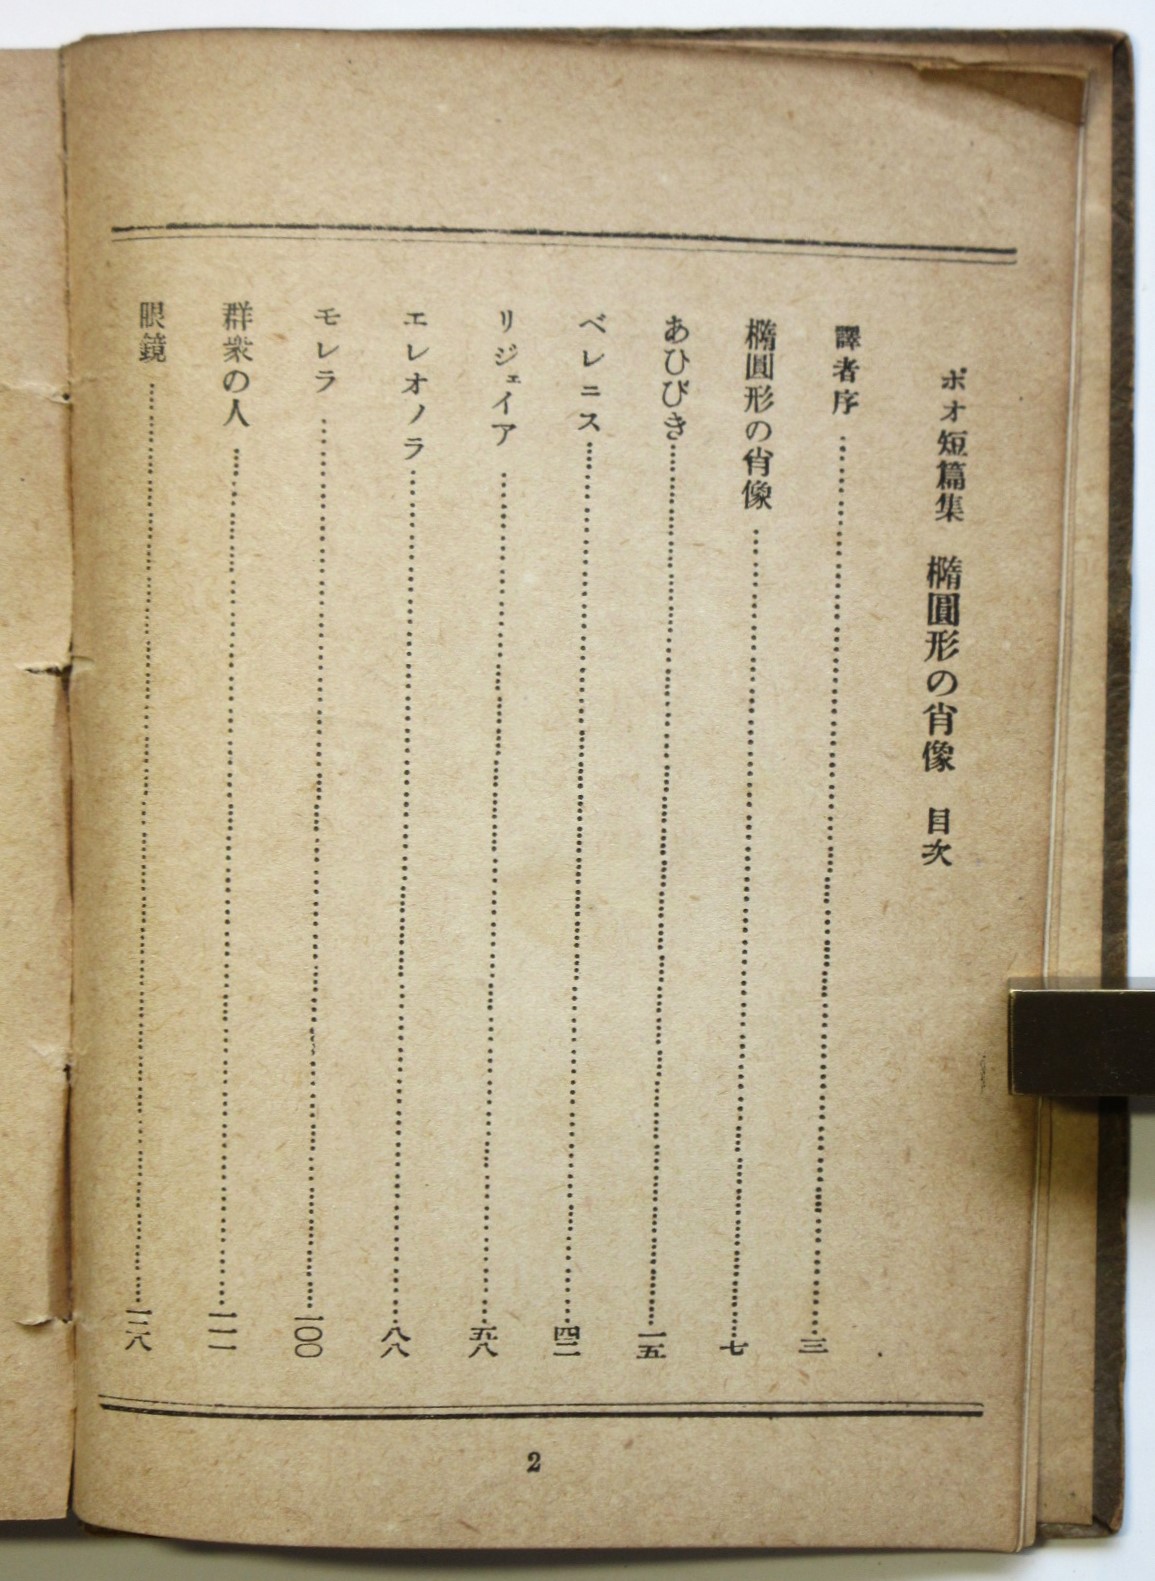 ポオ短篇集 橢圓形の肖像 目次
譯者序……三
橢圓形の肖像……七
あひびき……一五
ベレニス……四二
リジェイア……五八
エレオノラ……八八
モレラ……一〇〇
群衆の人……一一一
眼鏡……一二八
2